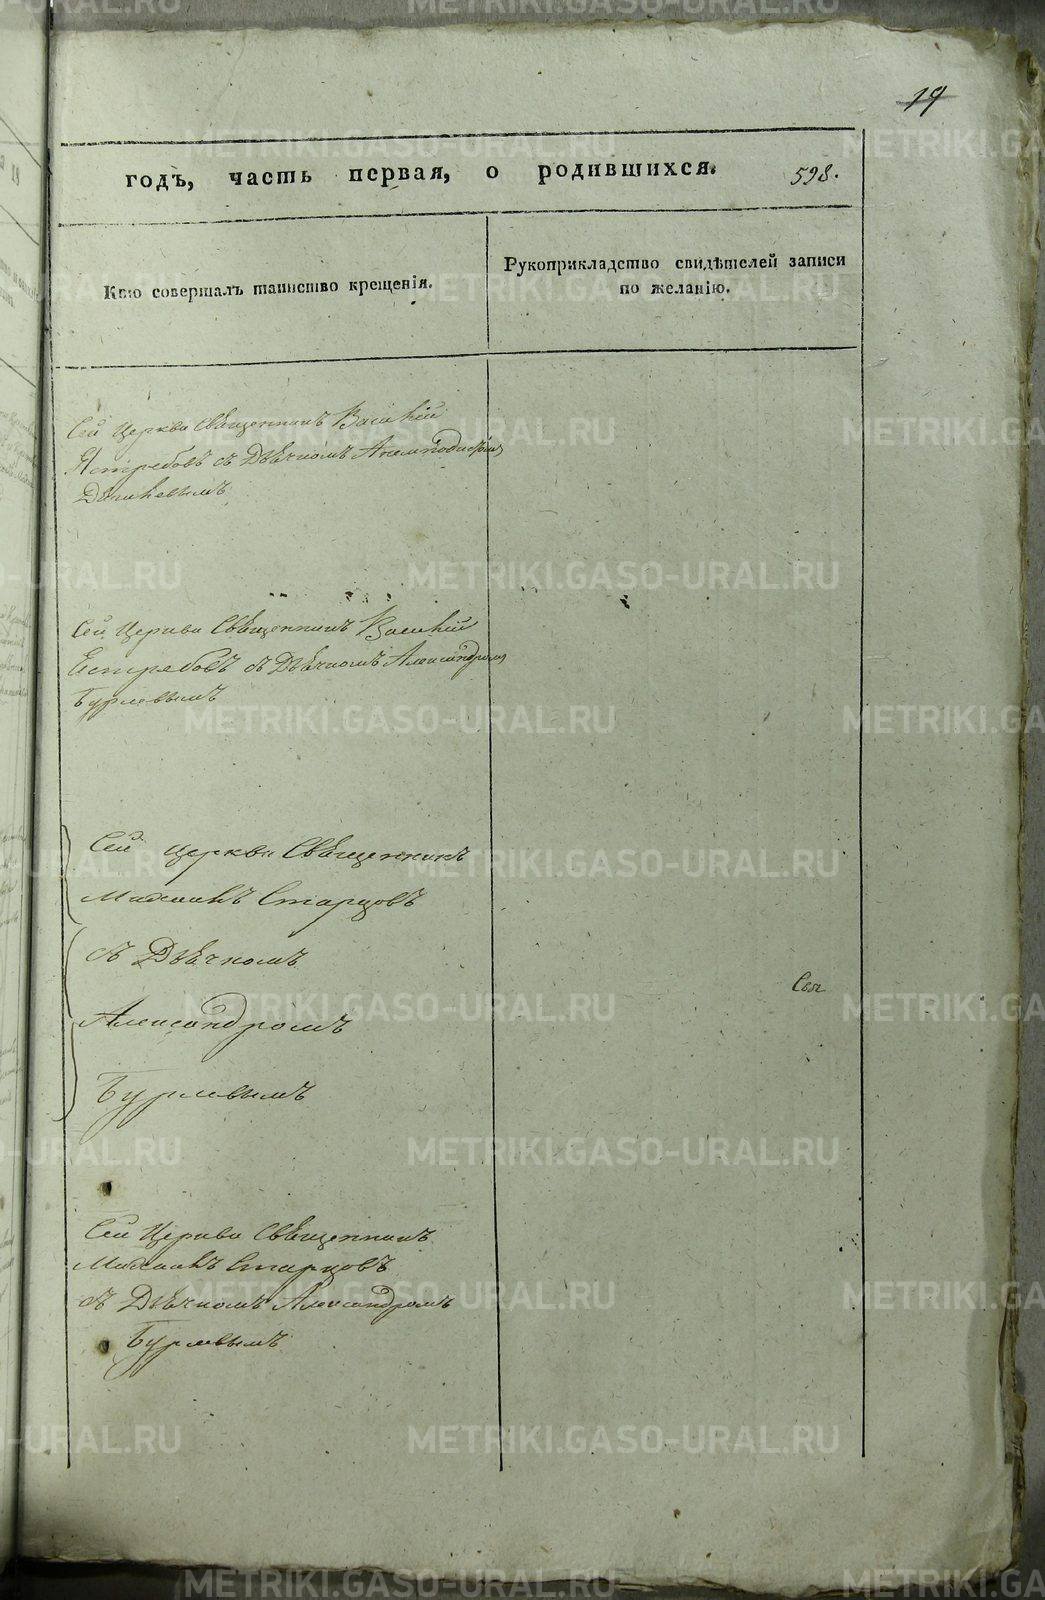 19
годъ, часть первая, о родившихся. 598.
Кто совершалъ таинство крещенія.
Рукоприкладство свидѣтелей записи
по желанію.
Сей Церкви Священникъ Василій
Ястребовъ съ Дьячкомъ
Сей Церкви Священникъ Василій
Естребовъ съ Дьячкомъ Александромъ
Бурлевымъ
Сей Церкви Священникъ
Михаилъ Старцовъ
съ Дьячкомъ
Свя
Александромъ
Бурлевымъ
Сей Церкви Священникъ
Михаилъ Старцовъ
съ Дьячкомъ Александромъ
Бурлевымъ
METRIKI.GASO-URAL.RU